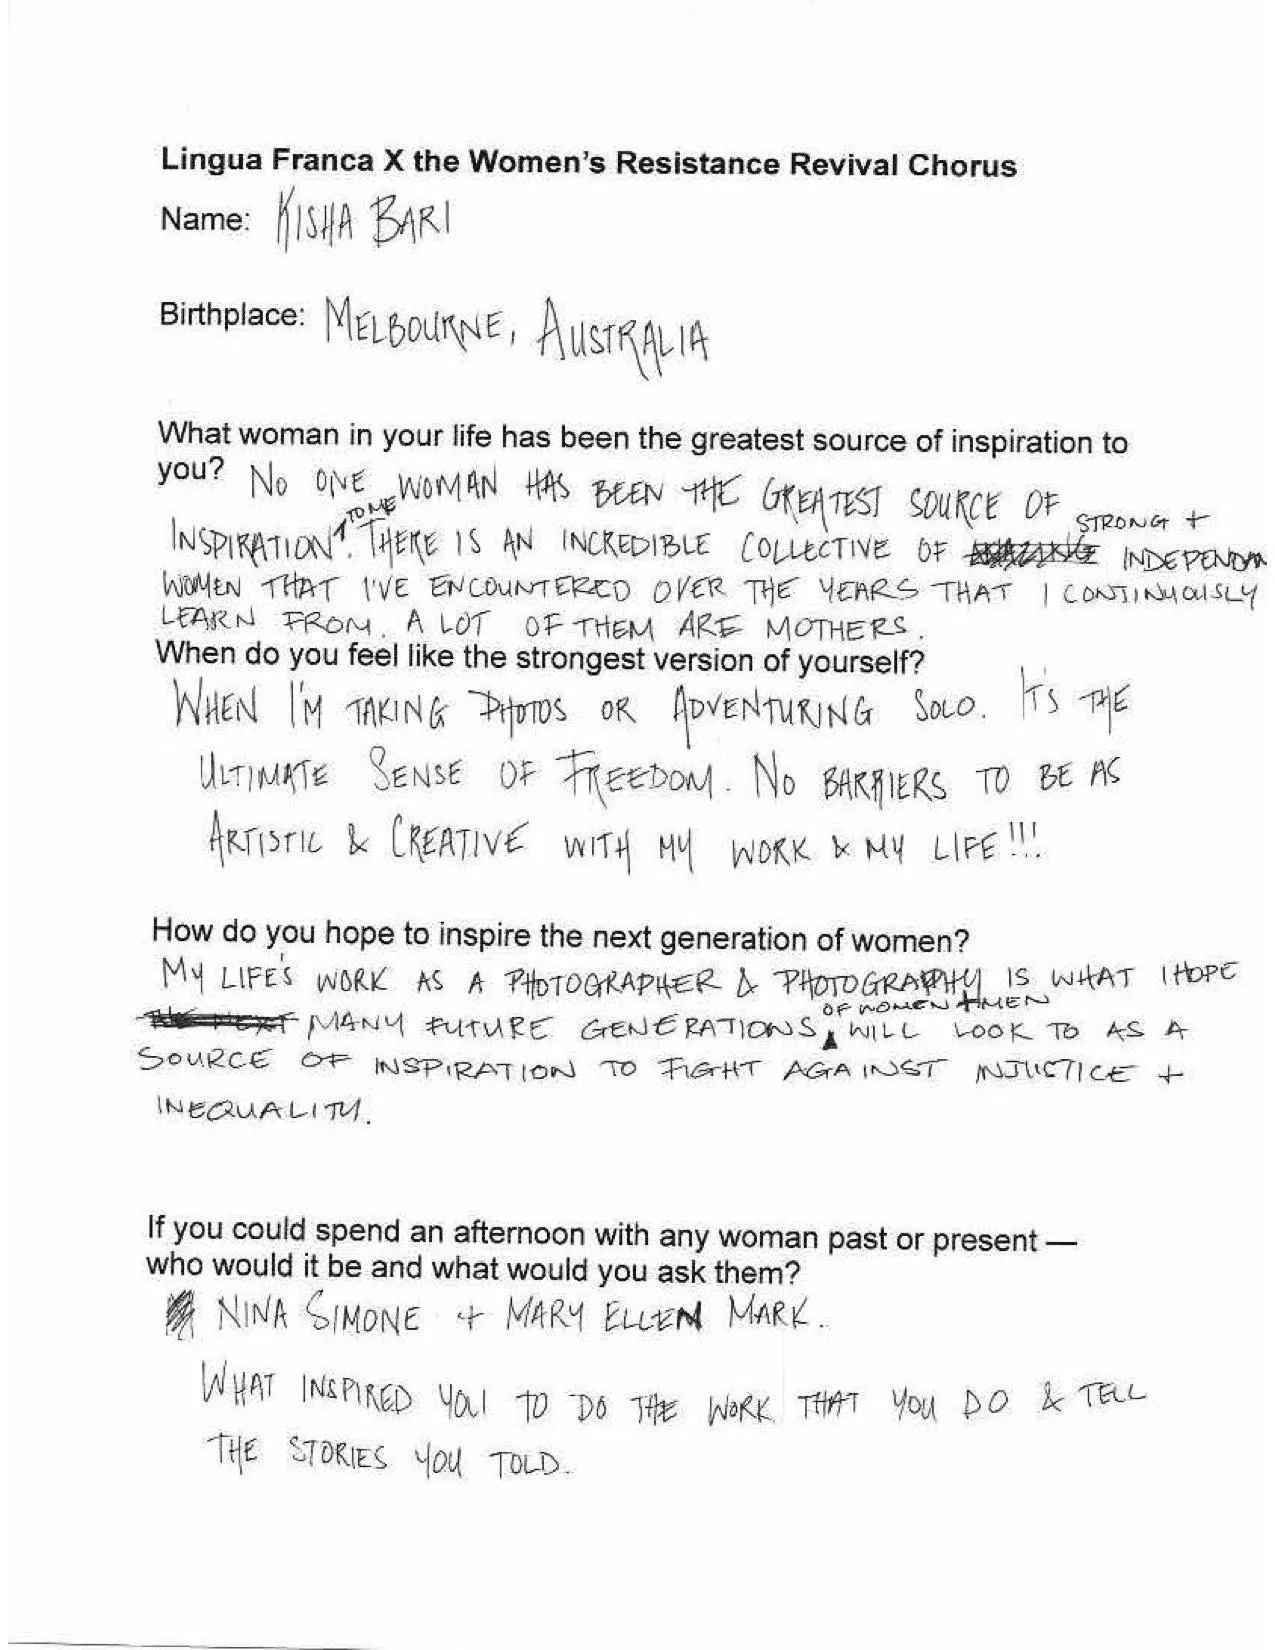 Lingua Franca X the Women's Resistance Revival Chorus
Name: KISHA BARI
Birthplace: MELBOURNE, AUSTRALIA
What woman in your life has been the greatest source of inspiration to
you? NO ONE WOMAN HAS BEEN THE GREATEST SOURCE OF
INSPIRATION TO ME. THERE IS AN INCREDIBLE COLLECTIVE OF STRONG + INDEPENDAN
WOMEN THAT I'VE ENCOUNTERED OVER THE YEARS THAT I CONTINUOUSLY
LEARN FROM. A LOT OF THEM ARE MOTHERS.
When do you feel like the strongest version of yourself?
WHEN I'M TAKING PHOTOS OR ADVENTURING SOLO. IT'S THE
ULTIMATE SENSE OF FREEDOM. NO BARRIERS TO BE AS
ARTISTIC & CREATIVE WITH MY WORK & MY LIFE!!!
How do you hope to inspire the next generation of women?
MY LIFE'S WORK AS A PHOTOGRAPHER & PHOTOGRAPHY IS WHAT I HOPE
MANY FUTURE GENERATIONS OF WOMEN + MEN WILL LOOK TO AS A
SOURCE OF INSPIRATION TO FIGHT AGAINST INJUCTICE +
INEQUALITY.
If you could spend an afternoon with any woman past or present —
who would it be and what would you ask them?
NINA SIMONE + MARY ELLEN MARK.
WHAT INSPIRED YOU TO DO THE WORK THAT YOU DO & TELL
THE STORIES YOU TOLD.